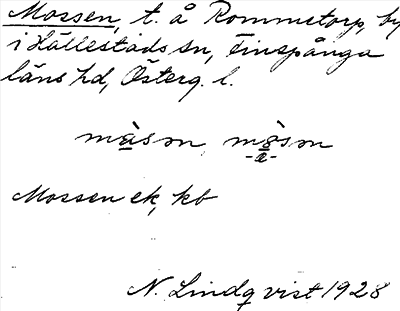 Mossen, t. å Rommetorp, by
i Hällestads sn, Finspånga
läns hd, Österg. l.
màsƏn, mòsƏn
-a-
Mossen ek, kb
N. Lindqvist 1928